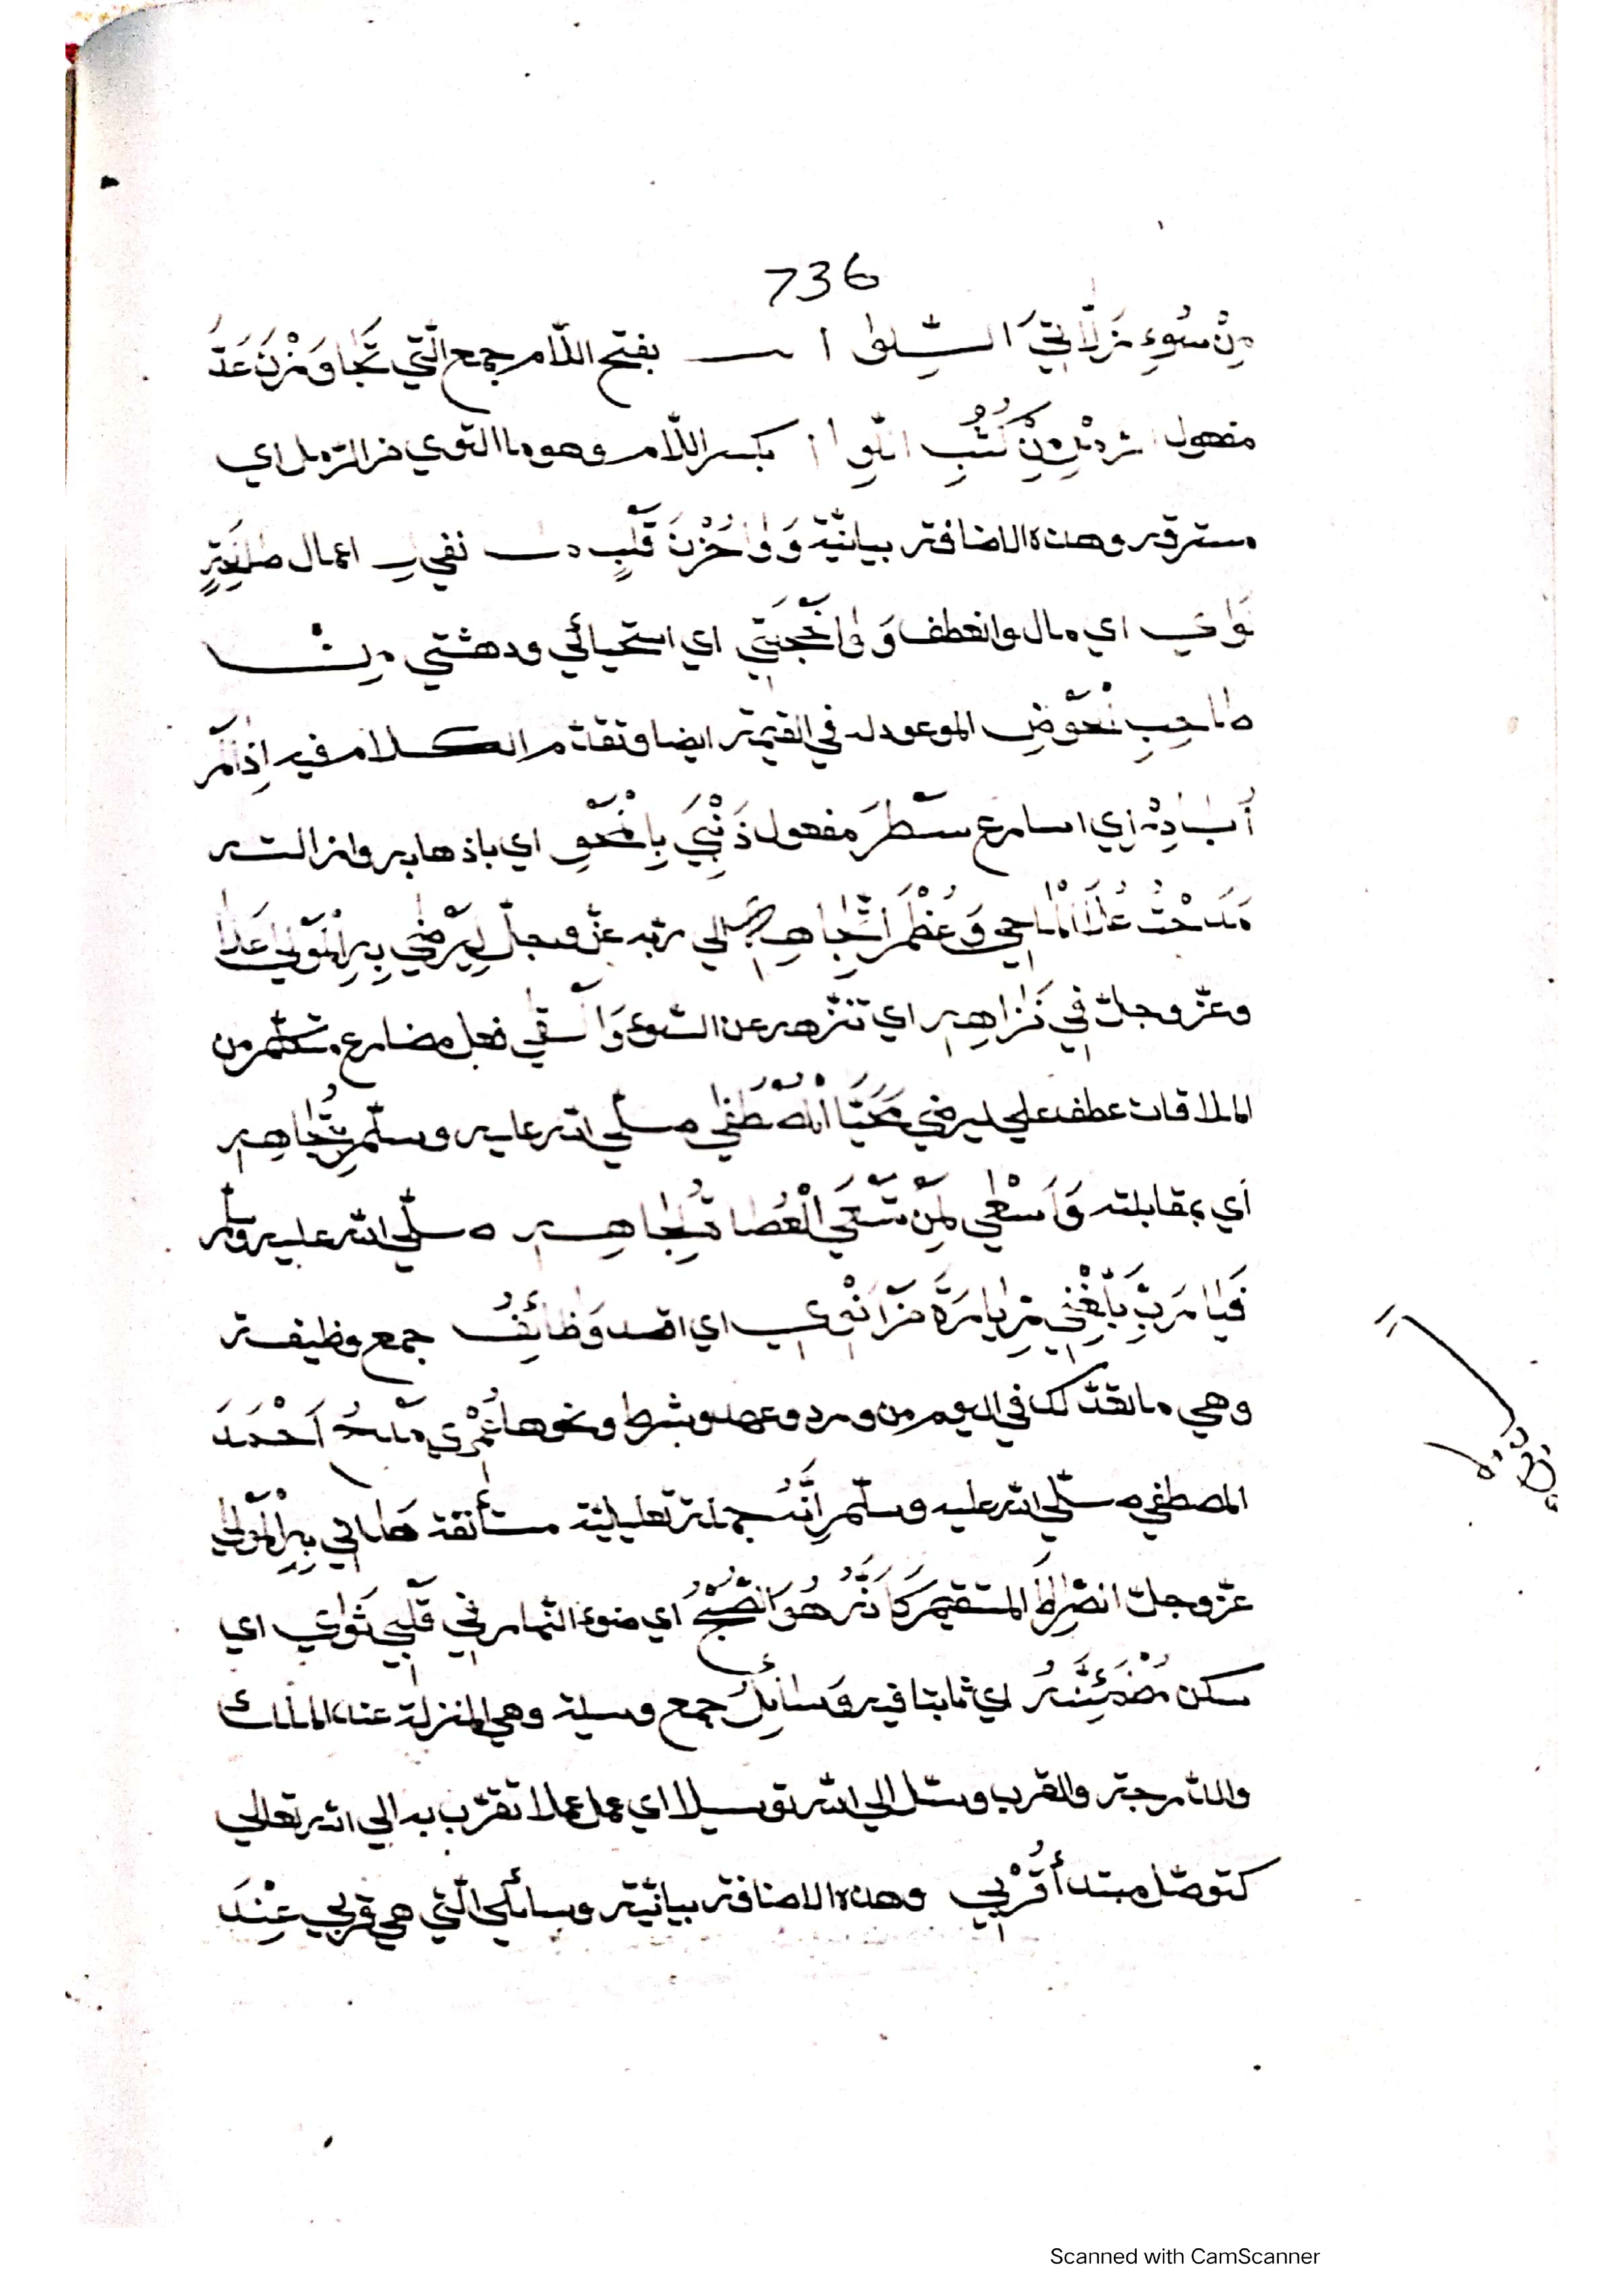 736
مِنْ سُوءِ زَلَّاتِيَ اللِّوا ا بفتح اللّام جمع الّتي تَجَاوَزْنَ عَدَّ
مفعول مِنْ كُثُبِ اللِّوا بكسر اللّام وهو ما التوي من الرّمل اي
مسترقه وهذه الاضافة بيانيّة وَوَاحُزْنَ قَلْبٍ نفي اعمال صالحةٍ
نَوَاي اي مال وانعطف وَوَاخَجْلَتِي اي استحيائي ودهشتي مِنْ
صَاحِبِ الْحَوْضِ الموعود له في القيمة ايضا وتقدّم الكلام فيه اِذَا لَمْ
أُبَادِرْ اي اسارع سَطْرَ مفعول ذَنْبِيَ بِالْمَحْوِ اي باذهابه وازالته
مَدَحْتُ عُلَا الْمَاحِي وَعُظْمَ اتِّجَاهِهِ الي ربّه عزّ وجلّ لِيَرْضي بِهِ الْمَوْلي عَلَا
وعزّ وجلّ فِي نَزَاهِهِ اي تنزّهه عن السّوء وَالْقي فعل مضارع متكلّم من
الملاقات عطف علي ليرضي مُحَيَّا الْمُصْطَفي صلّي الله عليه وسلّم تُجَاهِهِ
أي بمقابلته وَاَسْعي لِمَنْ تَسْعَي الْعُصَاةُ لِجَاهِهِ صلّي الله عليه وسلّم
فَيَا رَبِّ بَلِّغْنِي زِيَارَةَ مَنْ اَنْوِي اي اقصد وَظَائِفُ جمع وظيفة
وهي ما تقدّر لك في اليوم من ورد وعهد وشرط ونحوها عُمْرِي مَدْحُ اَحْمَدَ
المصطفي صلّي الله عليه وسلّم اِنَّهُ جملة تعليليّة مستأنفة هَدَانِي بِهِ الْمَوْلي
عزّ وجلّ الصِّرَاطَ المستقيم كَاَنَّهُ هُوَ الصُّبْحُ اي ضوء النّهار فِي قَلْبِي ثَوَاي اي
سكن مُطْمَئِنُّهُ اي ثابتا فيه وَسَائِلُ جمع وسيلة وهي المنزلة عند الملك
والدّرجة والقرب وسّل الي الله توسيلا اي عمل عملا تقرّب به الي الله تعالي
كتوصّل مبتدأ قُرْبِي وهذه الاضافة بيانيّة وسائلي الّتي هي قربي عِنْدَ
Scanned with CamScanner